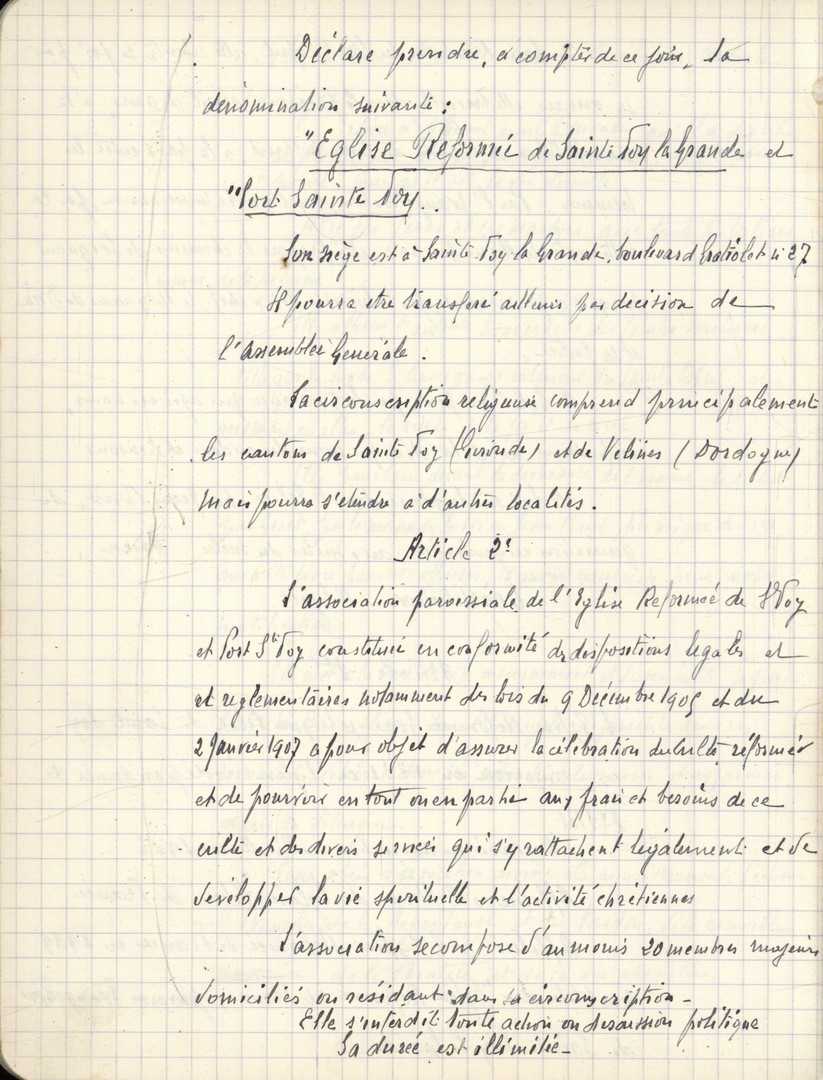 Déclare prendre, à compter de ce jour, la
dénomination suivante :
"Eglise Reformée de Sainte Foy la Grande et
"Port Sainte Foy..
Son siège est à Sainte-Foy la Grande, boulevard Gratiolet n° 27
Il pourra etre transferé ailleurs par decision de
l'Assemblée Generale.
La circonscription religieuse comprend principalement
les cantons de Sainte Foy (Gironde) et de Velines (Dordogne)
mais pourra s'etendre à d'autres localités.
Article 2e
L'association paroissiale de l'Eglise Reformeé de Ste Foy
et Port Ste Foy constituée en conformité des dispositions legales et
et reglementaires notamment des lois du 9 Décembre 1905 et du
2 Janvier 1907 a pour objet d'assurer la célébration du Culte réformé
et de pourvoir en tout ou en partie aux frais et besoins de ce
culte et des divers services qui s'y rattachent legalement et de
developper la vie spirituelle et l'activité chrétiennes
L'association se compose d'au moins 20 membres majeurs
domiciliés ou résidant dans sa circonscription -
Elle s'interdit toute action ou discussion politique
Sa durée est illimitée -